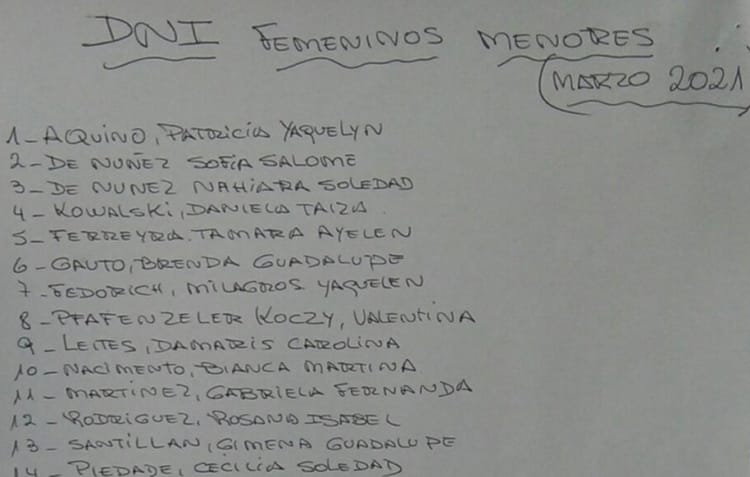 DNI FEMENINOS MENORES
(MARZO 2021)
1- AQUINO, PATRICIA YAQUELYN
2- DE NUÑEZ SOFIA SALOME
3- DE NUNEZ NAHIARA SOLEDAD
4- KOWALSKI, DANIELA TAIZA.
5- FERREYRA. TAMARA AYELEN
6- GAUTO, BRENDA GUADALUPE
7- FEDORICH, MILAGROS YAQUELEN
8- PFAFENZELER KOCZY, VALENTINA
9- LEITES, DAMARIS CAROLINA
10- NACIMENTO, BIANCA MARTINA
11- MARTINEZ, GABRIELA FERNANDA
12- RODRIGUEZ, ROSANA ISABEL
13- SANTILLAN, GIMENA GUADALUPE
14- PIEDADE, CECILIA SOLEDAD